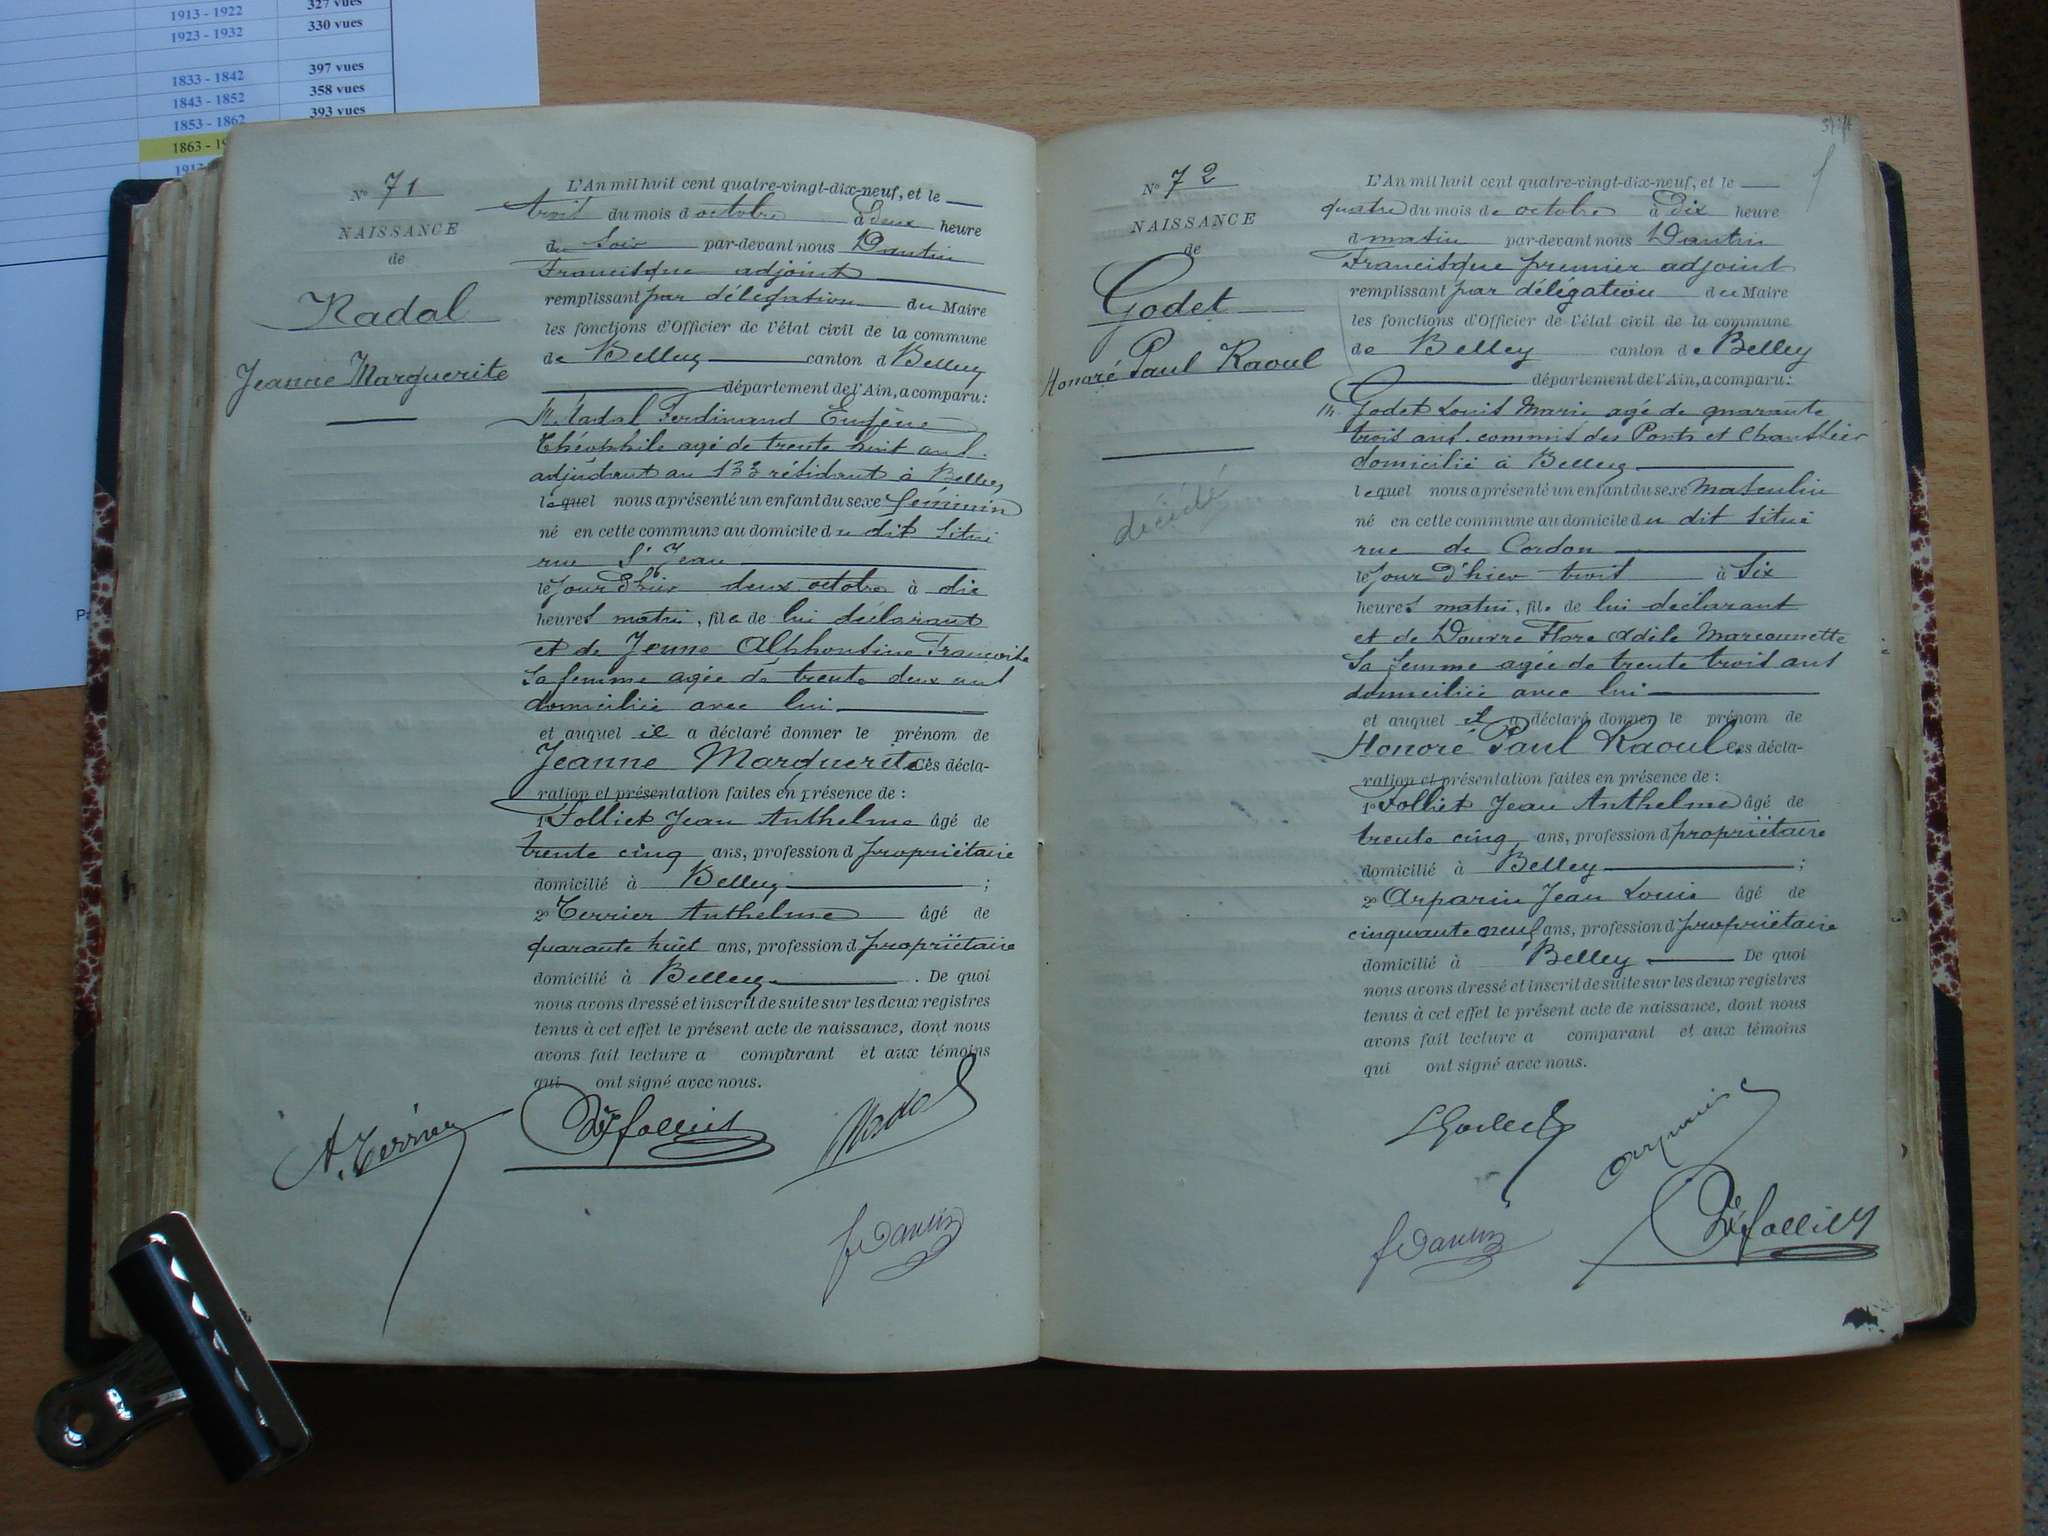 1913 - 1922 327 vues
1923 - 1932 330 vues
1833 - 1842 397 vues
1843 - 1852 358 vues
1853 - 1862 393 vues
1863 - 1
N° 71
NAISSANCE
de
Radal
Jeanne Marguerite
L'An mil huit cent quatre-vingt-dix-neuf, et le
trois du mois d octobre à deux heure
du soir par-devant nous Dantin
Francisque adjoint
remplissant par délégation du Maire
les fonctions d'Officier de l'état civil de la commune
de Belley canton d Belley
département de l'Ain, a comparu :
M. Radal Ferdinand Eugène
Théophile agé de trente huit ans
adjudant au 133 résidant à Belley
lequel nous a présenté un enfant du sexe féminin
né en cette commune au domicile du dit situé
rue St Jean
le jour d'hier deux octobre à dix
heures matin, fille de lui déclarant
et de Jenne Alphonsine Françoise
sa femme agée de trente deux ans
domiciliée avec lui
et auquel il a déclaré donner le prénom de
Jeanne Marguerite. Ces décla-
ration et présentation faites en présence de :
1° Folliet Jean Anthelme âgé de
trente cinq ans, profession d propriétaire
domicilié à Belley ;
2° Terrier Anthelme âgé de
quarante huit ans, profession d propriétaire
domicilié à Belley . De quoi
nous avons dressé et inscrit de suite sur les deux registres
tenus à cet effet le présent acte de naissance, dont nous
avons fait lecture a comparant et aux témoins
qui ont signé avec nous.
A. Terrier Folliet Radal
F Dantin
N° 72
NAISSANCE
de
Godet
Honoré Paul Raoul
décédé
L'An mil huit cent quatre-vingt-dix-neuf, et le
quatre du mois de octobre à Dix heure
d matin par-devant nous Dantin
Francisque premier adjoint
remplissant par délégation du Maire
les fonctions d'Officier de l'état civil de la commune
de Belley canton de Belley
département de l'Ain, a comparu :
M. Godet Louis Marie agé de quarante
trois ans commis des Ponts et Chaussées
domicilié à Belley
lequel nous a présenté un enfant du sexe masculin
né en cette commune au domicile du dit situé
rue de Cordon
le jour d'hier trois à six
heures matin, fils de lui déclarant
et de Douvre Flore Adèle Marconnette
sa femme agée de trente trois ans
domiciliée avec lui
et auquel il a déclaré donner le prénom de
Honoré Paul Raoul. Ces décla-
ration et présentation faites en présence de :
1° Folliet Jean Anthelme âgé de
trente cinq ans, profession d propriétaire
domicilié à Belley ;
2° Arparin Jean Louis âgé de
cinquante neuf ans, profession d propriétaire
domicilié à Belley De quoi
nous avons dressé et inscrit de suite sur les deux registres
tenus à cet effet le présent acte de naissance, dont nous
avons fait lecture a comparant et aux témoins
qui ont signé avec nous.
L Godet Arparin
F Dantin Folliet